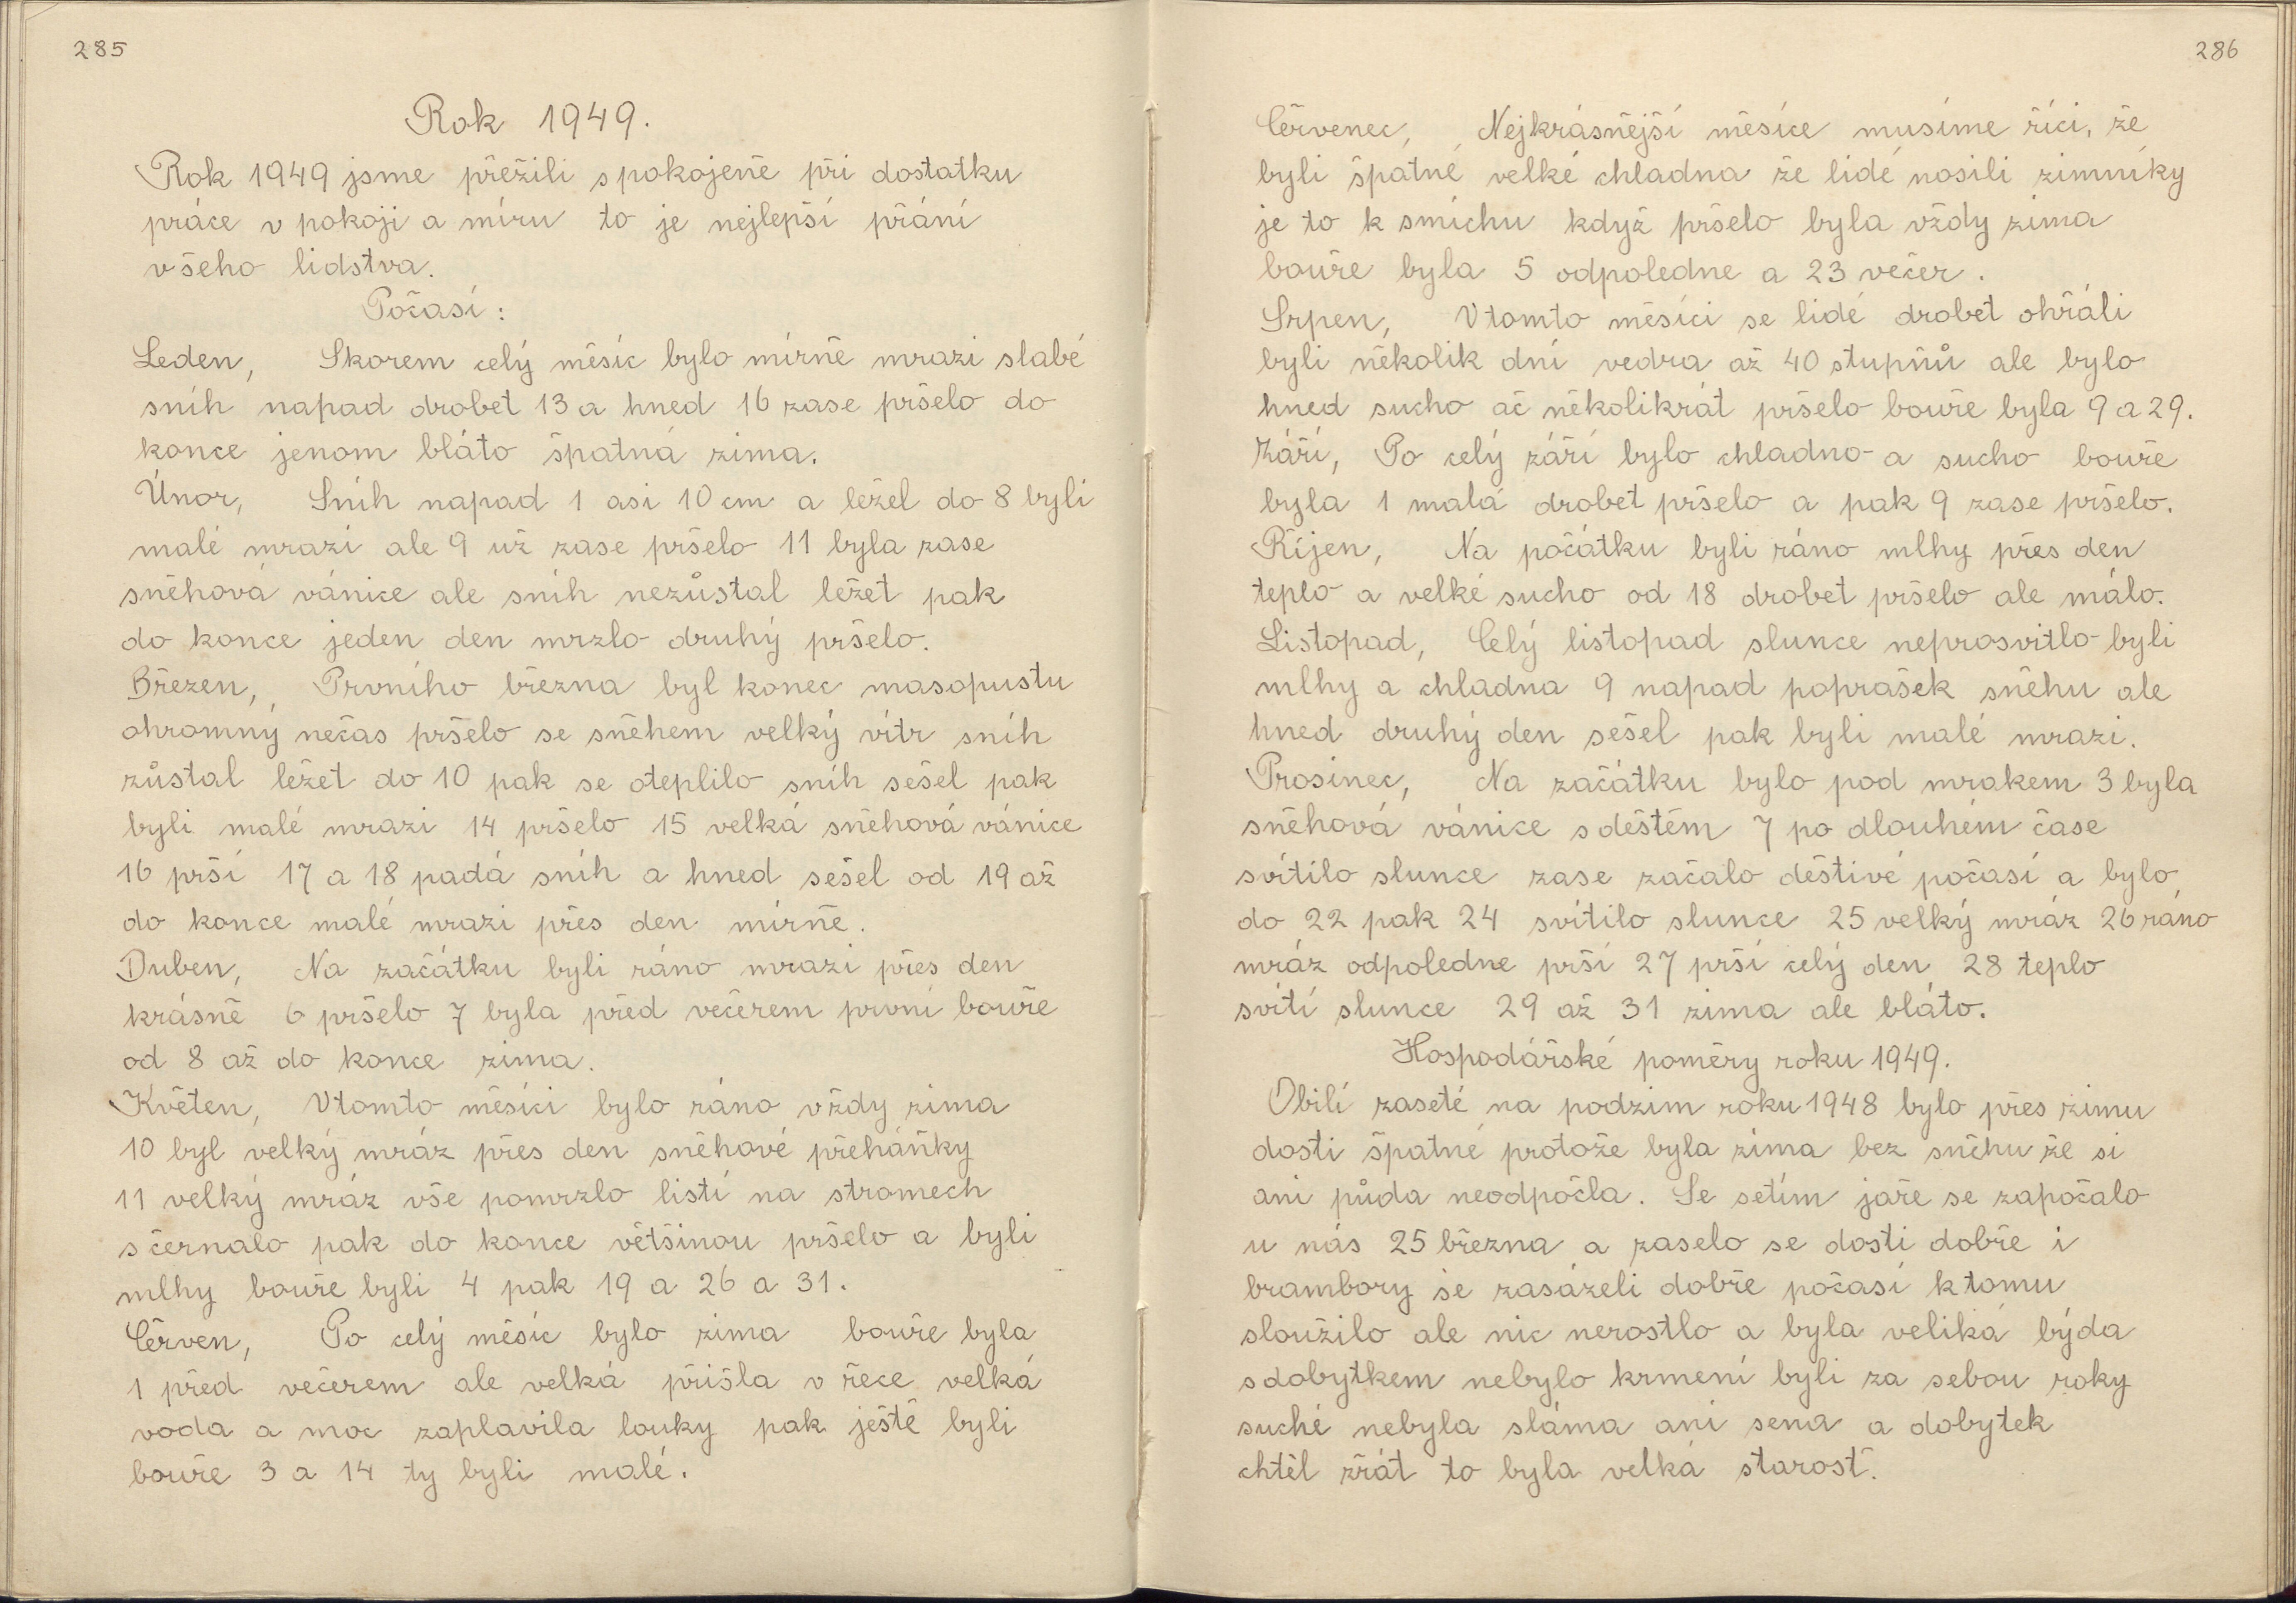 285
Rok 1949.
Rok 1949 jsme přežili spokojeně při dostatku
práce v pokoji a míru to je nejlepší přání
všeho lidstva.
Počasí:
Leden, Skorem celý měsíc bylo mírně mrazi slabé
sníh napad drobet 13 a hned 16 zase pršelo do
konce jenom bláto špatná zima.
Únor, Sníh napad 1 asi 10 cm a ležel do 8 byli
malé mrazi ale 9 už zase pršelo 11 byla zase
sněhová vánice ale sníh nezůstal ležet pak
do konce jeden den mrzlo druhý pršelo.
Březen, Prvního března byl konec masopustu
ohromný nečas pršelo se sněhem velký vítr sníh
zůstal ležet do 10 pak se oteplilo sníh sešel pak
byli malé mrazi 14 pršelo 15 velká sněhová vánice
16 prší 17 a 18 padá sníh a hned sešel od 19 až
do konce malé mrazi přes den mírně.
Duben, Na začátku byli ráno mrazi přes den
krásně 6 pršelo 7 byla před večerem první bouře
od 8 až do konce zima.
Květen, Vtomto měsíci bylo ráno vždy zima
10 byl velký mráz přes den sněhové přeháňky
11 velký mráz vše pomrzlo listí na stromech
sčernalo pak do konce většinou pršelo a byli
mlhy bouře byli 4 pak 19 a 26 a 31.
Červen, Po celý měsíc bylo zima bouře byla
1 před večerem ale velká přišla v řece velká
voda a moc zaplavila louky pak ještě byli
bouře 3 a 14 ty byli malé.
286
Červenec, Nejkrásnější měsíce musíme říci, že
byli špatné velké chladna že lidé nosili zimníky
je to k smíchu když pršelo byla vždy zima
bouře byla 5 odpoledne a 23 večer.
Srpen, Vtomto měsíci se lidé drobet ohřáli
byli několik dní vedra až 40 stupňů ale bylo
hned sucho ač několikrát pršelo bouře byla 9 a 29.
Září, Po celý září bylo chladno a sucho bouře
byla 1 malá drobet pršelo a pak 9 zase pršelo.
Říjen, Na počátku byli ráno mlhy přes den
teplo a velké sucho od 18 drobet pršelo ale málo.
Listopad, Celý listopad slunce neprosvitlo byli
mlhy a chladna 9 napad poprašek sněhu ale
hned druhý den sešel pak byli malé mrazi.
Prosinec, Na začátku bylo pod mrakem 3 byla
sněhová vánice sdeštěm 7 po dlouhém čase
svítilo slunce zase začalo deštivé počasí a bylo
do 22 pak 24 svítilo slunce 25 velký mráz 26 ráno
mráz odpoledne prší 27 prší celý den 28 teplo
svítí slunce 29 až 31 zima ale bláto.
Hospodářské poměry roku 1949.
Obilí zaseté na podzim roku 1948 bylo přes zimu
dosti špatné protože byla zima bez sněhu že si
ani půda neodpočla. Se setím jaře se započalo
u nás 25 března a zaselo se dosti dobře i
brambory se zasázeli dobře počasí ktomu
sloužilo ale nic nerostlo a byla veliká býda
sdobytkem nebylo krmení byli za sebou roky
suché nebyla sláma ani sena a dobytek
chtěl žřát to byla velká starost.